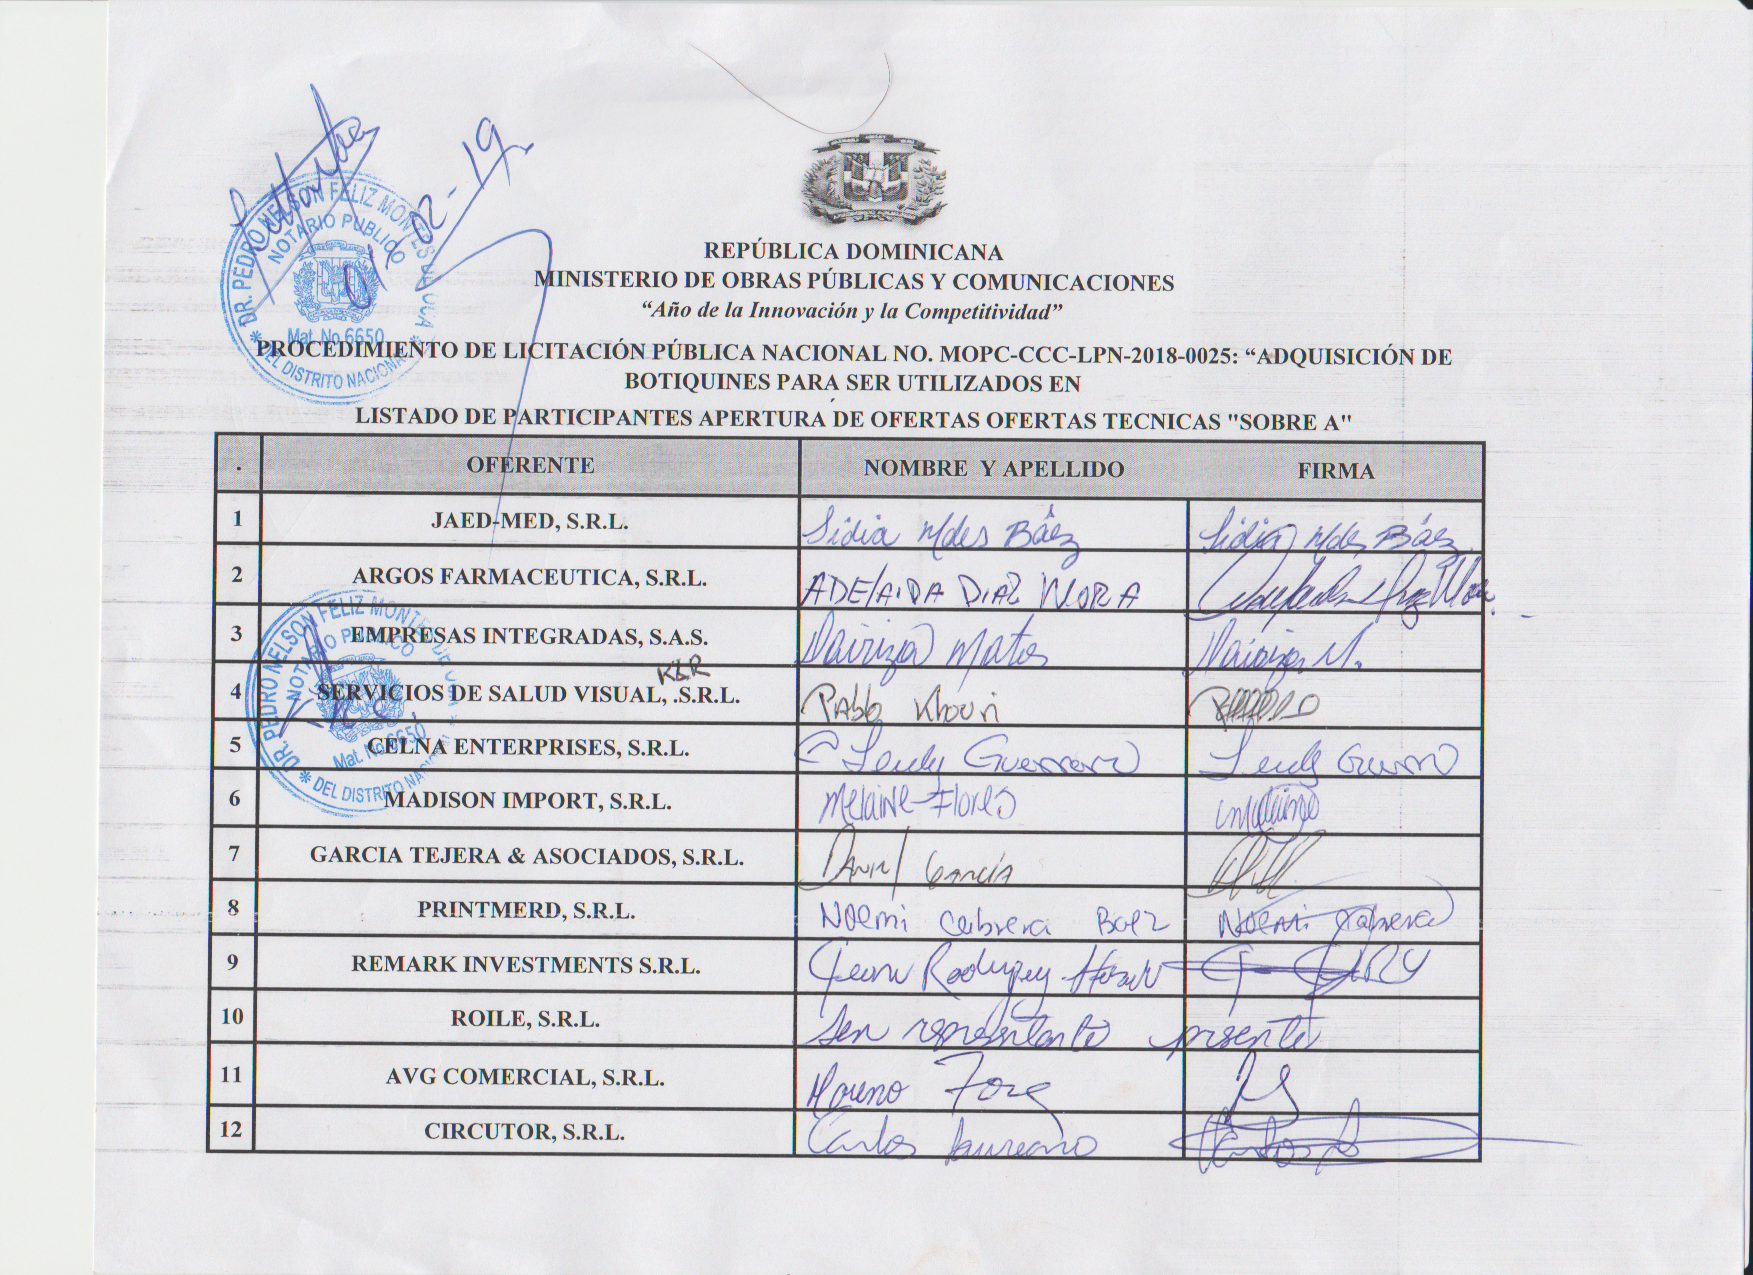 REPÚBLICA DOMINICANA
MINISTERIO DE OBRAS PÚBLICAS Y COMUNICACIONES
“Año de la Innovación y la Competitividad”
PROCEDIMIENTO DE LICITACIÓN PÚBLICA NACIONAL NO. MOPC-CCC-LPN-2018-0025: “ADQUISICIÓN DE
BOTIQUINES PARA SER UTILIZADOS EN
LISTADO DE PARTICIPANTES APERTURA DE OFERTAS OFERTAS TECNICAS "SOBRE A"
DR. PEDRO NELSON FELIZ MONTES DE OCA
NOTARIO PUBLICO
Mat. No.6650
DEL DISTRITO NACIONAL
02-19
. OFERENTE NOMBRE Y APELLIDO FIRMA
1 JAED-MED, S.R.L. Báez Báez
2 ARGOS FARMACEUTICA, S.R.L. ADELAIDA DIAZ MORA
3 EMPRESAS INTEGRADAS, S.A.S. Matos
K&R
4 SERVICIOS DE SALUD VISUAL, .S.R.L. Pablo Khouri
5 CELNA ENTERPRISES, S.R.L. Leudy Guerrero Leudy
6 MADISON IMPORT, S.R.L. Melaine Flores
7 GARCIA TEJERA & ASOCIADOS, S.R.L. García
8 PRINTMERD, S.R.L. Noemi Cabrera Baez Noemi Cabrera
9 REMARK INVESTMENTS S.R.L. Jean Rodriguez
10 ROILE, S.R.L. Sin representante presente
11 AVG COMERCIAL, S.R.L. Moreno
12 CIRCUTOR, S.R.L. Carlos Laureano
DR. PEDRO NELSON FELIZ MONTES
NOTARIO PUBLICO
Mat. No.6650
DEL DISTRITO NACIONAL